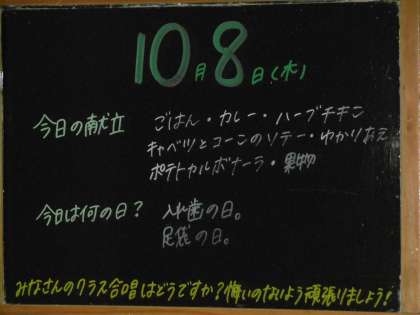 10月8日(水)
今日の献立 ごはん・カレー・ハーブチキン
キャベツとコーンのソテー・ゆかりあえ
ポテトカルボナーラ・果物
今日は何の日? 入れ歯の日。
足袋の日。
みなさんのクラス合唱はどうですか?悔いのないよう頑張りましょう!